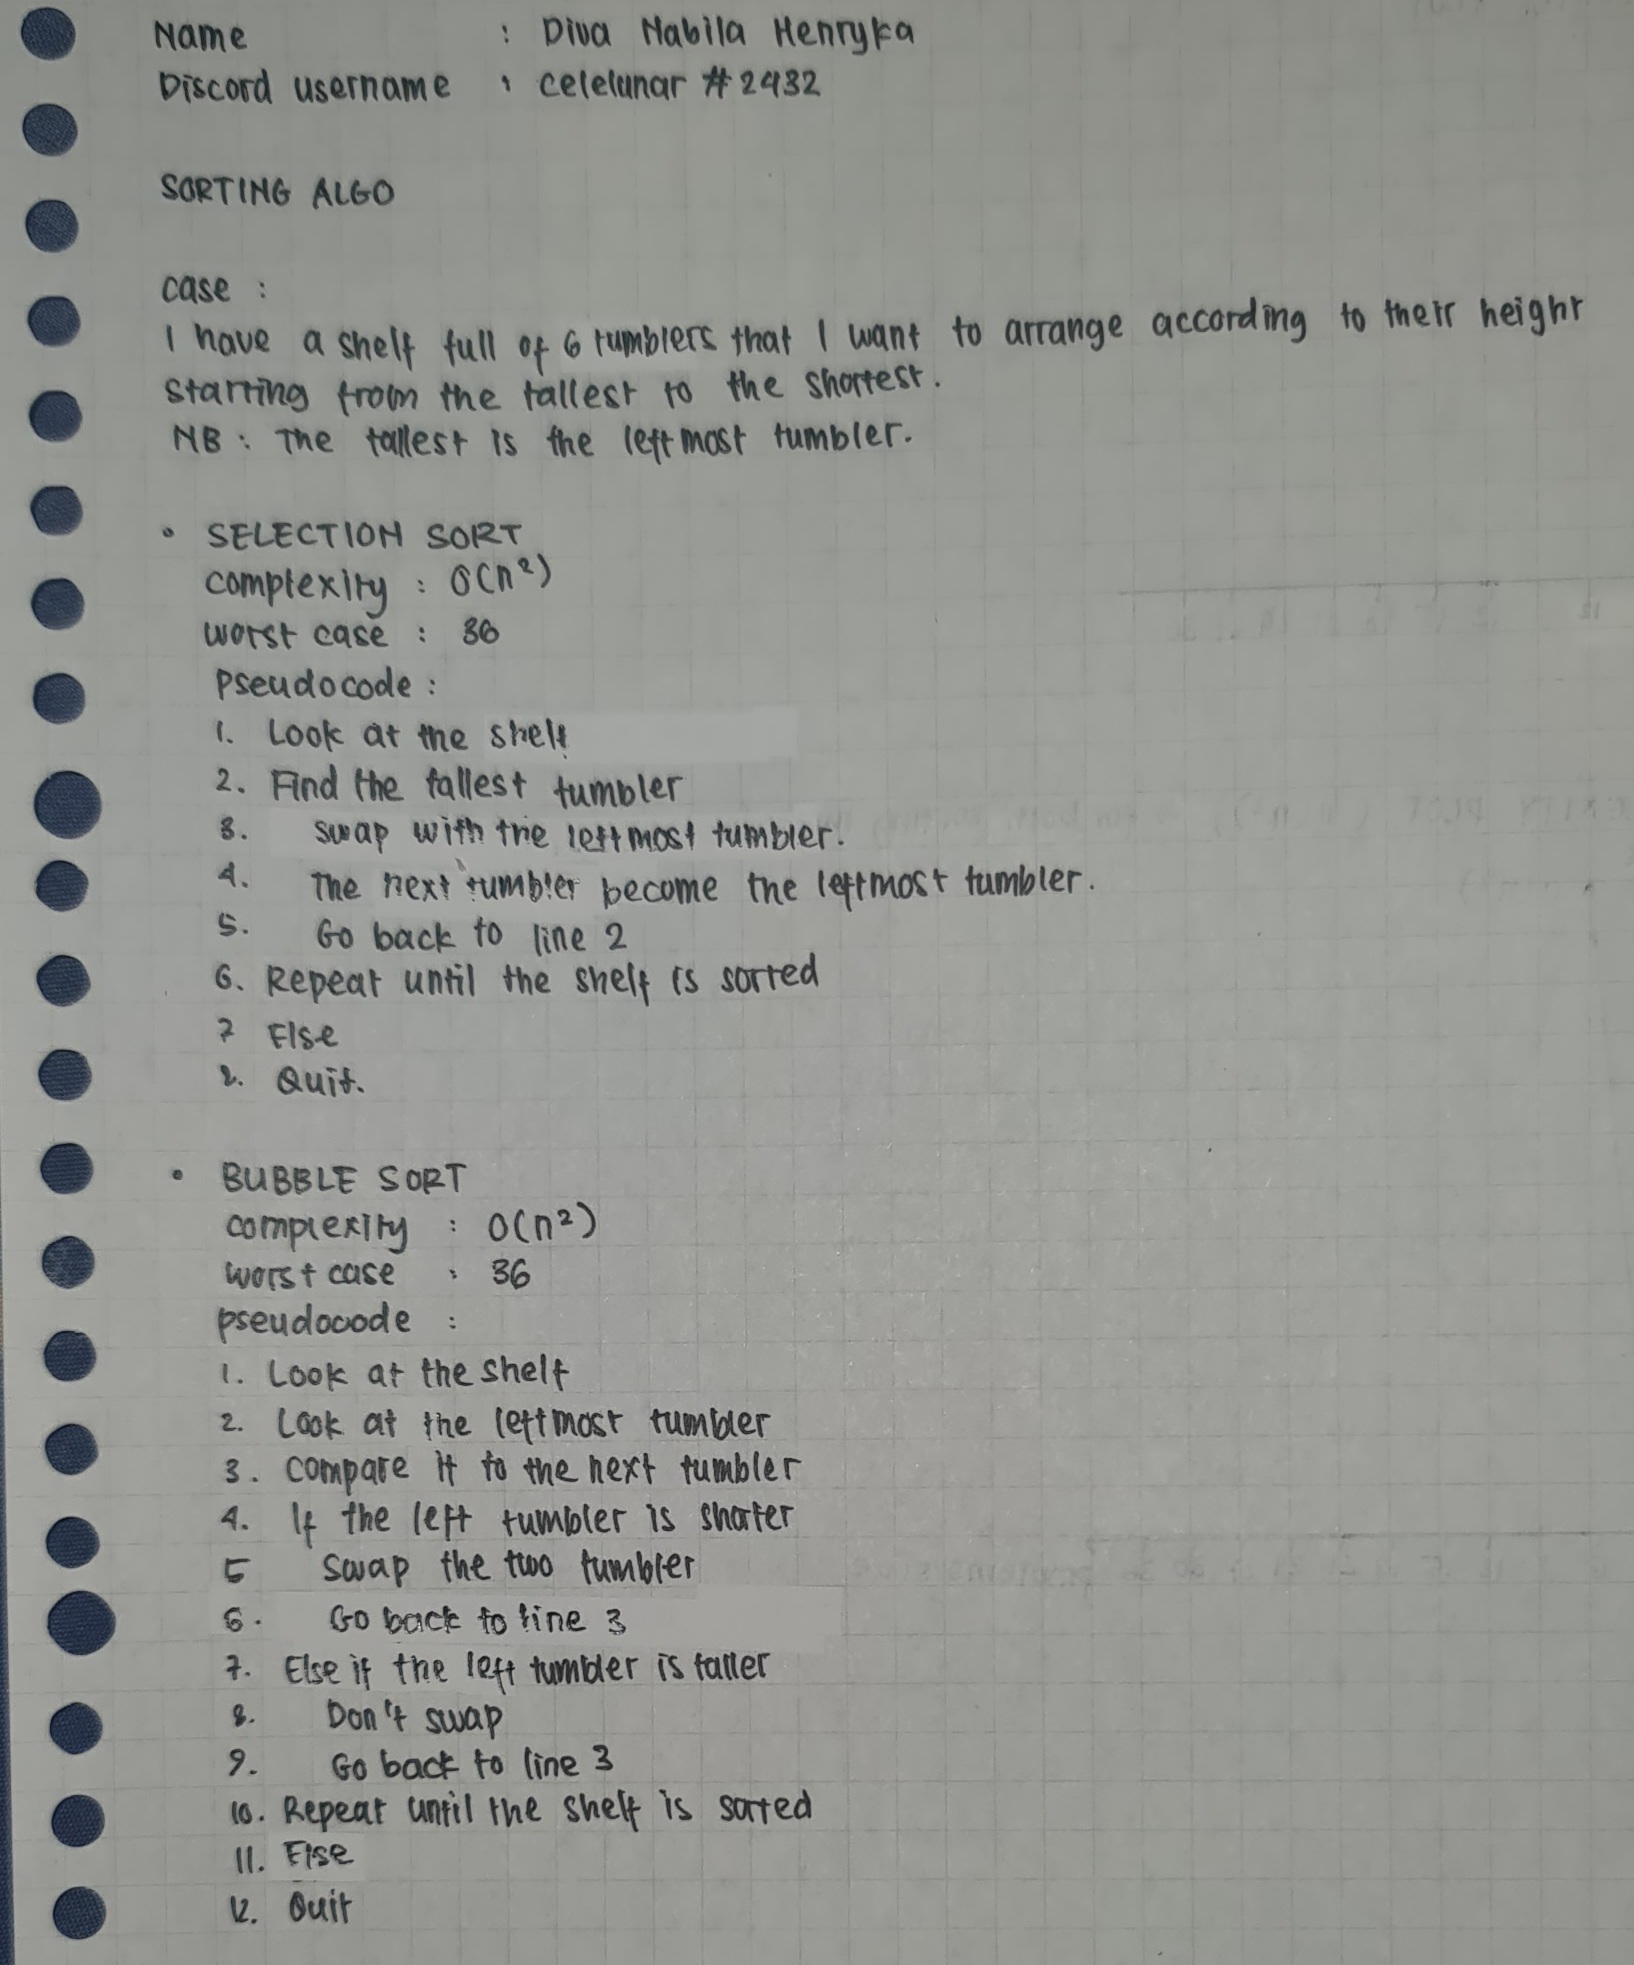 Name : Diva Nabila Henryka
Discord username : celelunar #2432
SORTING ALGO
case :
I have a shelf full of 6 tumblers that I want to arrange according to their height
starting from the tallest to the shortest.
NB : The tallest is the leftmost tumbler.
• SELECTION SORT
complexity : O(n²)
worst case : 36
pseudocode :
1. Look at the shelf
2. Find the tallest tumbler
3. swap with the leftmost tumbler.
4. The next tumbler become the leftmost tumbler.
5. Go back to line 2
6. Repeat until the shelf is sorted
7 Else
8. Quit.
• BUBBLE SORT
complexity : O(n²)
worst case : 36
pseudocode :
1. Look at the shelf
2. Look at the leftmost tumbler
3. compare it to the next tumbler
4. If the left tumbler is shorter
5 swap the two tumbler
6. Go back to line 3
7. Else if the left tumbler is taller
8. Don't swap
9. Go back to line 3
10. Repeat until the shelf is sorted
11. Else
12. Quit